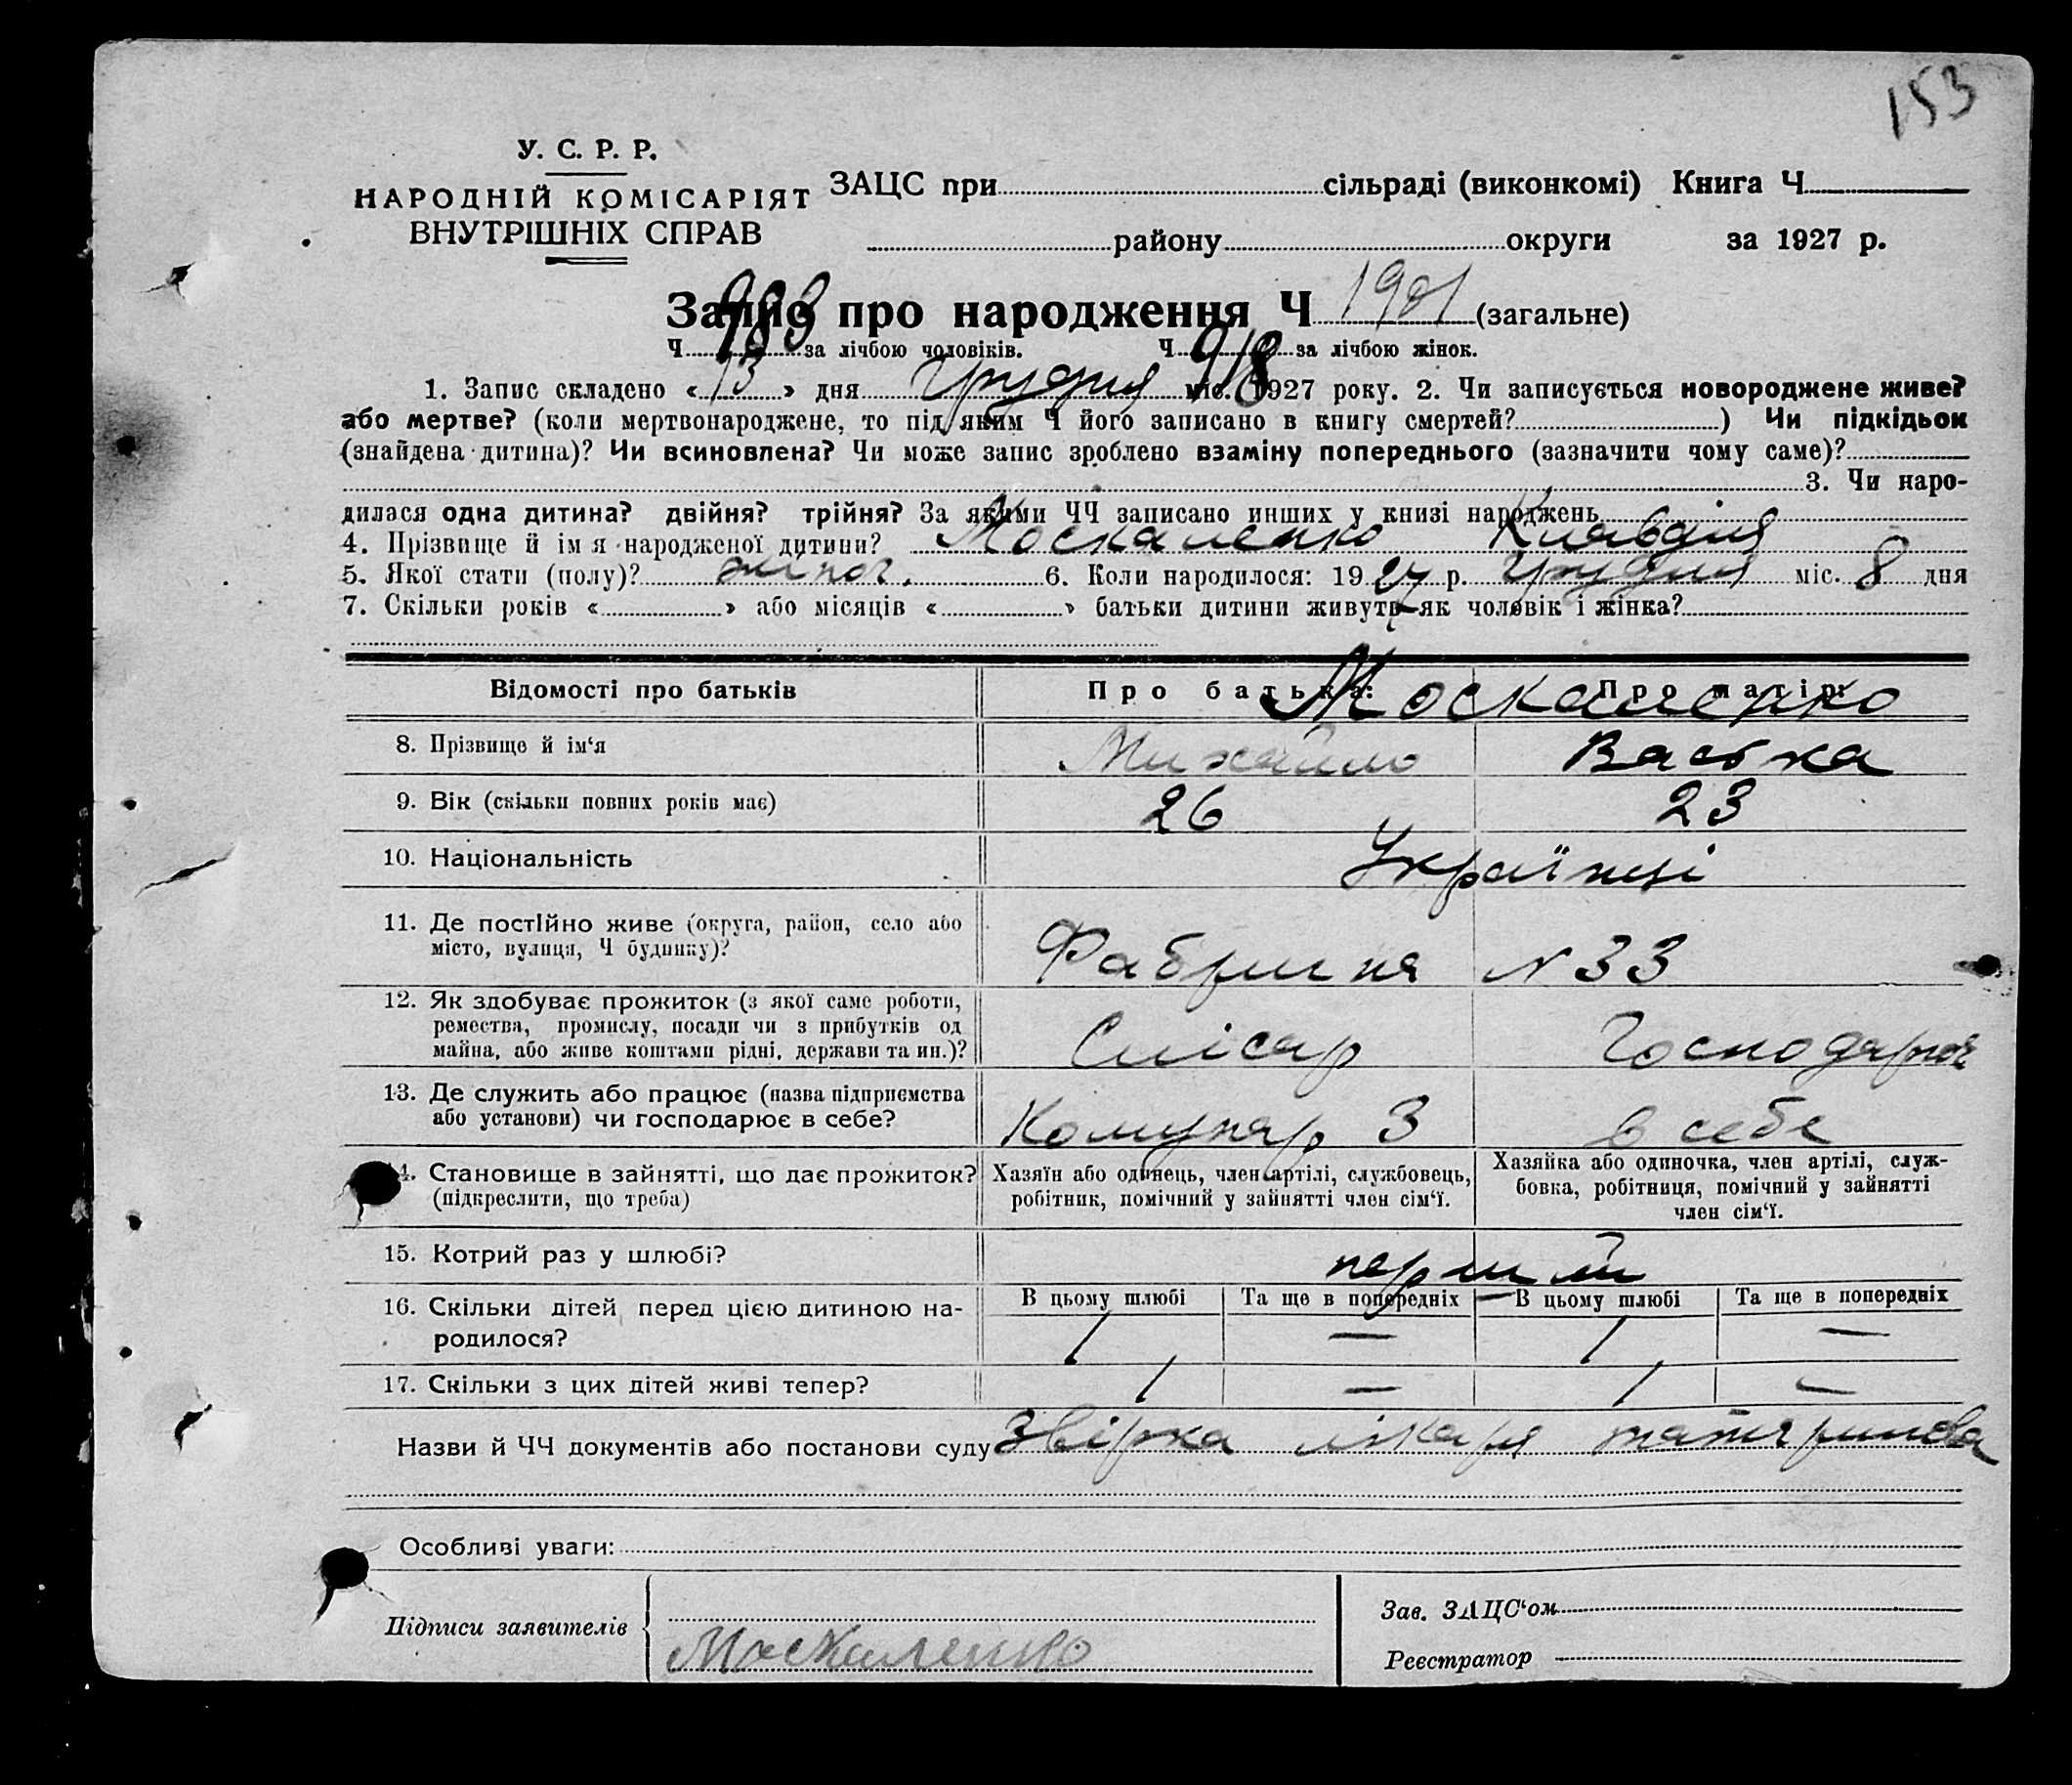 153
У. С. Р. Р.
НАРОДНІЙ КОМІСАРІЯТ
ВНУТРІШНІХ СПРАВ
ЗАЦС при сільраді (виконкомі) Книга Ч
району округи за 1927 р.
Запис про народження Ч 1901 (загальне)
Ч 983 за лічбою чоловіків. Ч 918 за лічбою жінок.
1. Запис складено « 13 » дня Грудня міс. 1927 року. 2. Чи записується новороджене живе?
або мертве? (коли мертвонароджене, то під яким Ч його записано в книгу смертей? ) Чи підкідьок
(знайдена дитина)? Чи всиновлена? Чи може запис зроблено взаміну попереднього (зазначити чому саме)?
3. Чи наро-
дилася одна дитина? двійня? трійня? За якими ЧЧ записано инших у книзі народжень
4. Прізвище й ім я народженої дитини? Москаленко Клавдія
5. Якої стати (полу)? жіноч. 6. Коли народилося: 19 27 р. Грудня міс. 8 дня
7. Скільки років « » або місяців « » батьки дитини живуть як чоловік і жінка?
Відомості про батьків Про батька: Про матір:
Москаленко
8. Прізвище й ім‘я Михайло Васька
9. Вік (скільки повних років має) 26 23
10. Національність Українці
11. Де постійно живе (округа, район, село або
місто, вулиця, Ч будинку)? Фабрична N 33
12. Як здобуває прожиток (з якої саме роботи,
ремества, промислу, посади чи з прибутків од
майна, або живе коштами рідні, держави та ин.)? Слісар Господарюе
13. Де служить або працює (назва підприємства
або установи) чи господарює в себе? Комунар 3 в себе
14. Становище в зайнятті, що дає прожиток?
(підкреслити, що треба)
Хазяїн або одинець, член артілі, службовець,
робітник, помічний у зайнятті член сім‘ї.
Хазяйка або одиночка, член артілі, служ-
бовка, робітниця, помічний у зайнятті
член сім‘ї.
15. Котрий раз у шлюбі? перший
16. Скільки дітей перед цією дитиною на-
родилося?
В цьому шлюбі Та ще в попередніх В цьому шлюбі Та ще в попередніх
1 — 1 —
17. Скільки з цих дітей живі тепер? 1 — 1 —
Назви й ЧЧ документів або постанови суду Звірка лікаря
Особливі уваги:
Підписи заявителів
Москаленко
Зав. ЗАЦС‘ом
Реєстратор